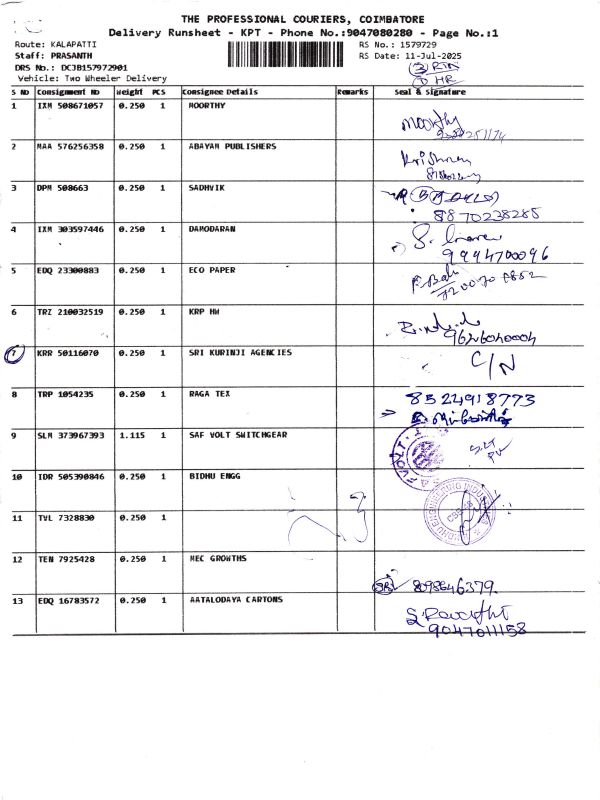 THE PROFESSIONAL COURIERS, COIMBATORE
Delivery Runsheet - KPT - Phone No.:9047080280 - Page No.:1
Route: KALAPATTI RS No.: 1579729
Staff: PRASANTH RS Date: 11-Jul-2025
DRS No.: DCJB157972901 (3) RTN
Vehicle: Two Wheeler Delivery HR
S No Consignment No Weight PCS Consignee Details Remarks Seal & signature
1 IXM 508671057 0.250 1 MOORTHY
Moorthy
2 MAA 576256358 0.250 1 ABAYAM PUBLISHERS
3 DPM 508663 0.250 1 SADHVIK
8870238285
4 IXM 303597446 0.250 1 DAMODARAN
9994700096
5 EDQ 23300883 0.250 1 ECO PAPER
6 TRZ 210032519 0.250 1 KRP HW
9626040004
7 KRR 50116070 0.250 1 SRI KURINJI AGENCIES
C/N
8 TRP 1054235 0.250 1 RAGA TEX 8524918773
9 SLM 373967393 1.115 1 SAF VOLT SWITCHGEAR
10 IDR 505390846 0.250 1 BIDHU ENGG
11 TVL 7328830 0.250 1
12 TEN 7925428 0.250 1 MEC GROWTHS
8098646379
13 EDQ 16783572 0.250 1 AATALODAYA CARTONS
9047011158